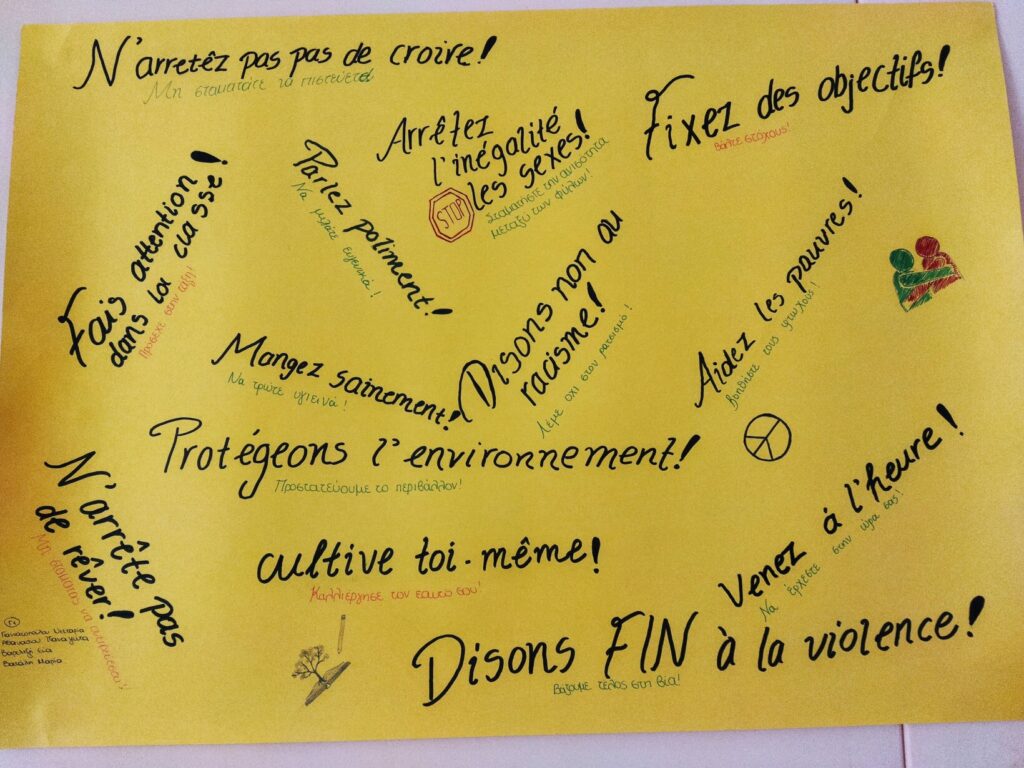 N'arretêz pas pas de croire!
Μη σταματάτε να πιστεύετε!
Arrêtez
l'inégalité
les sexes!
STOP
Σταματήστε την ανισότητα
μεταξύ των φύλων!
Fixez des objectifs!
Βάλτε στόχους!
Fais attention
dans la classe!
Πρόσεχε στην τάξη!
Parlez poliment!
Να μιλάτε ευγενικά!
Disons non au
racisme!
Λέμε όχι στον ρατσισμό!
Aidez les pauvres!
Βοηθήστε τους φτωχούς!
Mangez sainement!
Να τρώτε υγιεινά!
Protégeons l'environnement!
Προστατεύουμε το περιβάλλον!
N'arrête pas
de rêver!
Μη σταματάς να ονειρεύεσαι!
cultive toi-même!
Καλλιέργησε τον εαυτό σου!
Venez à l'heure!
Να έρχεστε στην ώρα σας!
Disons FIN à la violence!
Βάζουμε τέλος στη βία!
Μαρία